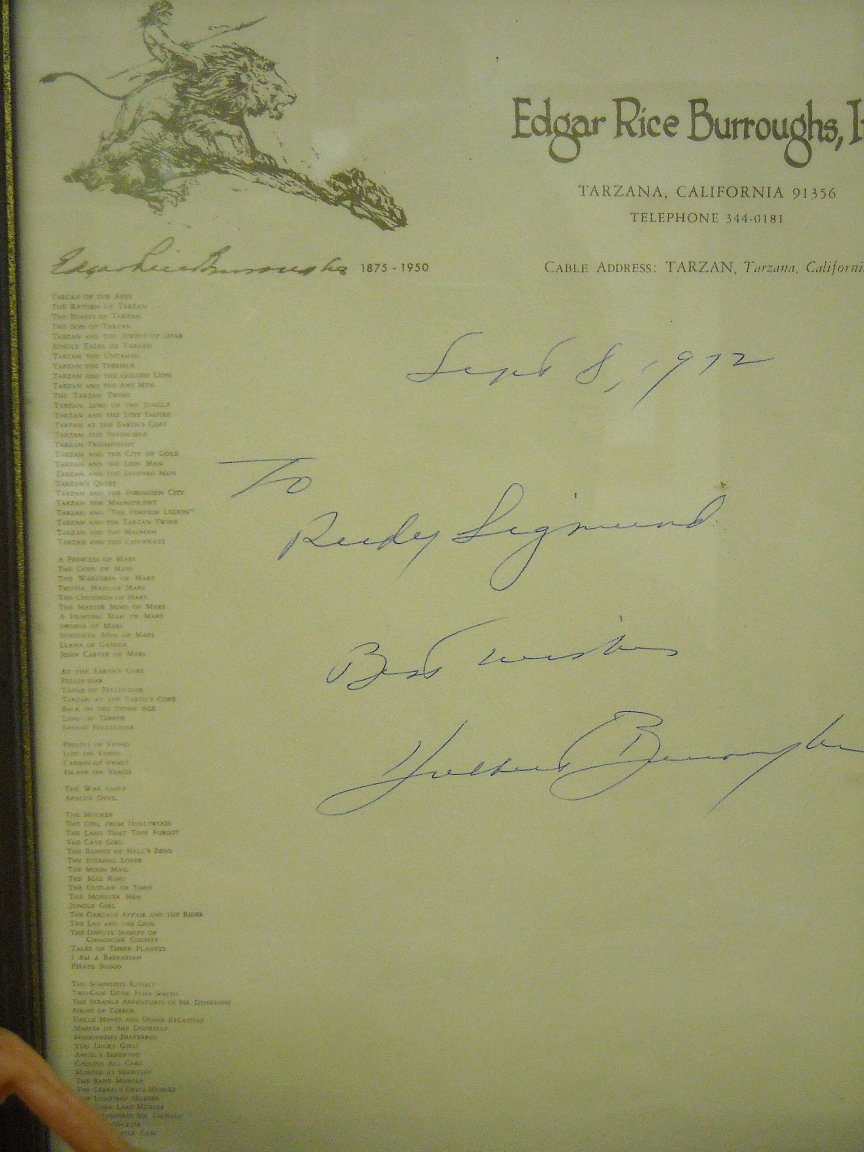 Edgar Rice Burroughs,
TARZANA, CALIFORNIA 91356
TELEPHONE 344-0181
Edgar Rice Burroughs 1875 - 1950
CABLE ADDRESS: TARZAN, Tarzana, Californi
TARZAN OF THE APES
THE RETURN OF TARZAN
THE BEASTS OF TARZAN
THE SON OF TARZAN
TARZAN AND THE JEWELS OF OPAR
JUNGLE TALES OF TARZAN
TARZAN THE UNTAMED
TARZAN THE TERRIBLE
TARZAN AND THE GOLDEN LION
TARZAN AND THE ANT MEN
THE TARZAN TWINS
TARZAN, LORD OF THE JUNGLE
TARZAN AND THE LOST EMPIRE
TARZAN AT THE EARTH'S CORE
TARZAN THE INVINCIBLE
TARZAN TRIUMPHANT
TARZAN AND THE CITY OF GOLD
TARZAN AND THE LION MAN
TARZAN AND THE LEOPARD MEN
TARZAN'S QUEST
TARZAN AND THE FORBIDDEN CITY
TARZAN THE MAGNIFICENT
TARZAN AND "THE FOREIGN LEGION"
TARZAN AND THE TARZAN TWINS
TARZAN AND THE MADMAN
TARZAN AND THE CASTAWAYS
A PRINCESS OF MARS
THE GODS OF MARS
THE WARLORD OF MARS
THUVIA, MAID OF MARS
THE CHESSMEN OF MARS
THE MASTER MIND OF MARS
A FIGHTING MAN OF MARS
SWORDS OF MARS
SYNTHETIC MEN OF MARS
LLANA OF GATHOL
JOHN CARTER OF MARS
AT THE EARTH'S CORE
PELLUCIDAR
TANAR OF PELLUCIDAR
TARZAN AT THE EARTH'S CORE
BACK TO THE STONE AGE
LAND OF TERROR
SAVAGE PELLUCIDAR
PIRATES OF VENUS
LOST ON VENUS
CARSON OF VENUS
ESCAPE ON VENUS
THE WAR CHIEF
APACHE DEVIL
THE MUCKER
THE GIRL FROM HOLLYWOOD
THE LAND THAT TIME FORGOT
THE CAVE GIRL
THE BANDIT OF HELL'S BEND
THE ETERNAL LOVER
THE MOON MAID
THE MAD KING
THE OUTLAW OF TORN
THE MONSTER MEN
JUNGLE GIRL
THE OAKDALE AFFAIR AND THE RIDER
THE LAD AND THE LION
THE DEPUTY SHERIFF OF
COMANCHE COUNTY
TALES OF THREE PLANETS
I AM A BARBARIAN
PIRATE BLOOD
THE SCIENTISTS REVOLT
TWO-GUN DOAK FLIES SOUTH
THE STRANGE ADVENTURES OF MR. DINNWIDDIE
NIGHT OF TERROR
UNCLE MINER AND OTHER RELATIVES
MARCIA OF THE DOORSTEP
YOU LUCKY GIRL!
ANGEL'S SERENADE
CALLING ALL CARS
MURDER AT MIDNIGHT
THE BANK MURDER
THE TERRACE DRIVE MURDER
THE LIGHTSHIP MURDER
LAKE MURDER
Sept 8, 1972
To
Rudy Sigmund
Best wishes
Hulbert Burroughs